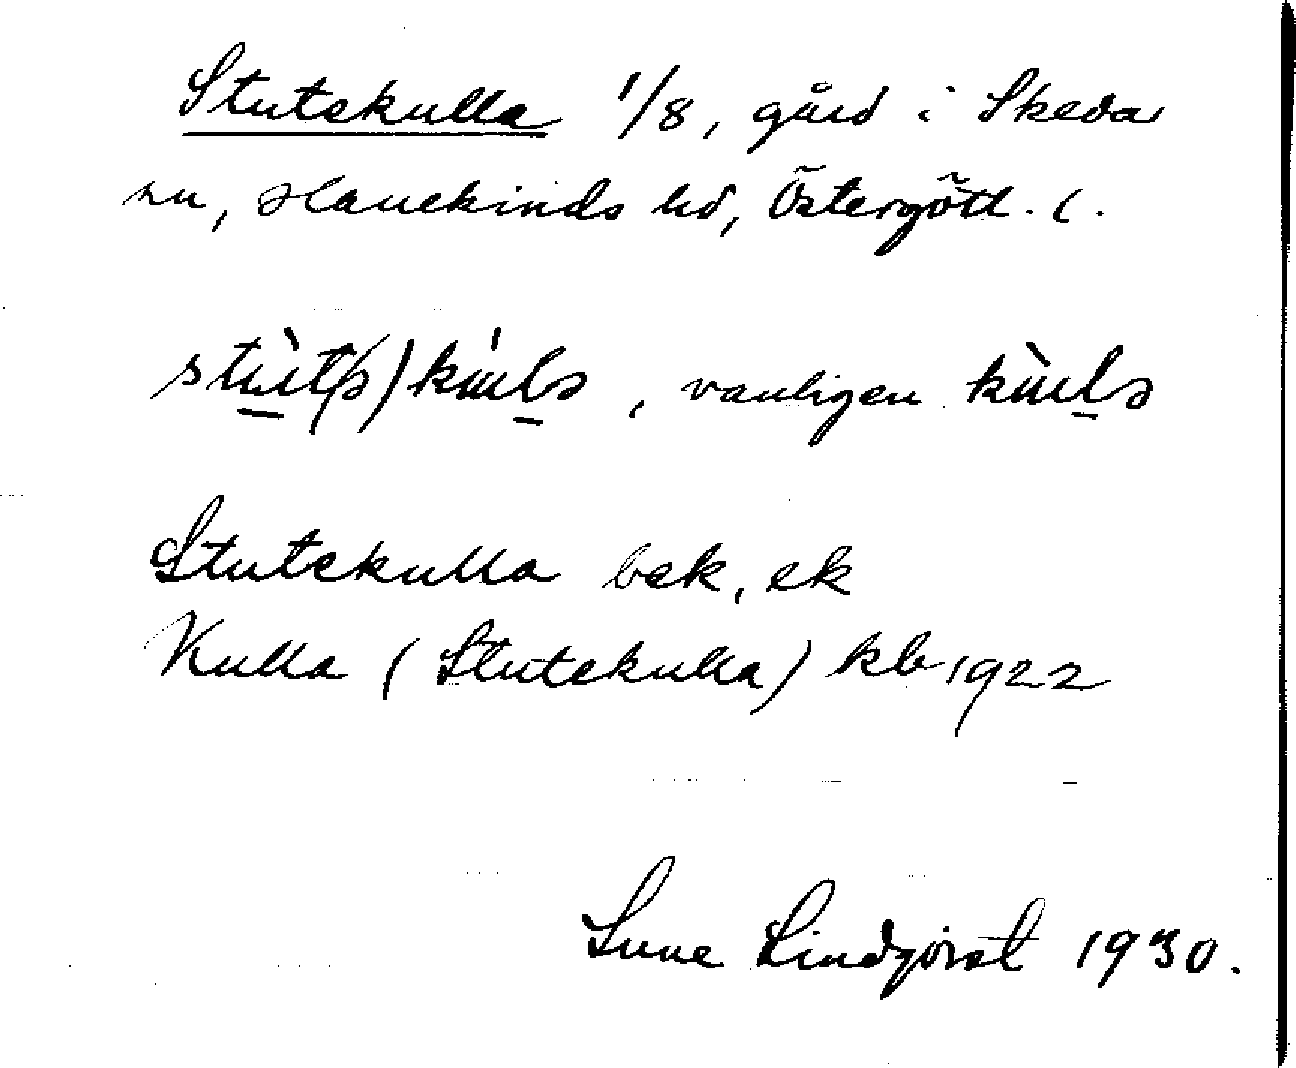 Stutekulla 1/8, gård i Skeda
sn, Hanekinds hd, Östergötl. l.
stùt(ə)kúlə, vanligen kùlə
Stutekulla bek, ek
Kulla (Stutekulla) kb 1922
Sune Lindqvist 1930.